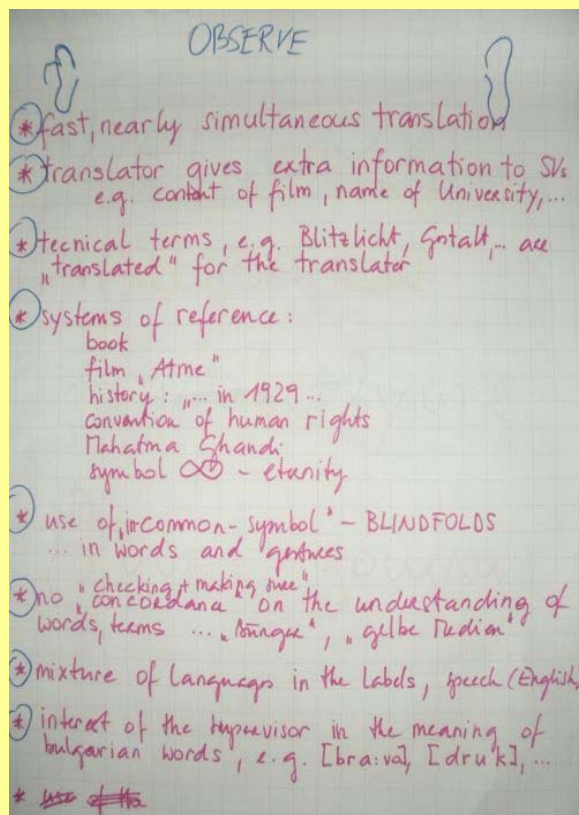 OBSERVE
* fast, nearly simultaneous translation
* translator gives extra information to SVs
e.g. content of film, name of University,...
* tecnical terms, e.g. Blitzlicht, Gstalt,... are
„translated" for the translator
* systems of reference:
book
film „Atme"
history: „... in 1929 ...
convention of human rights
Mahatma Ghandi
symbol ∞ - eternity
* use of „in-common-symbol" - BLINDFOLDS
... in words and gestures
„checking + making sure"
* no „concordance" on the understanding of
words, terms ... „ "‚ „gelbe Medien"
* mixture of languages in the labels, speech (English,
* interest of the supervisor in the meaning of
bulgarian words, e.g. [bra:va], [druk], ...
*